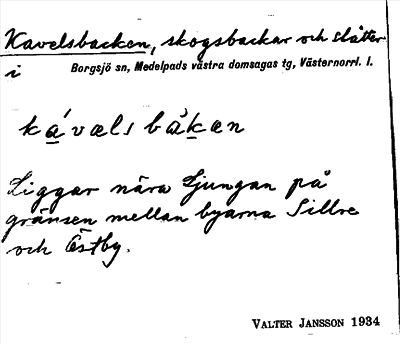 Kavelsbacken, skogsbackar och slåtter
i Borgsjö sn, Medelpads västra domsagas tg, Västernorrl. l.
ká̱vælsbàḵen
Liggar nära Ljungan på
gränsen mellan byarna Sillre
och Östby.
VALTER JANSSON 1934